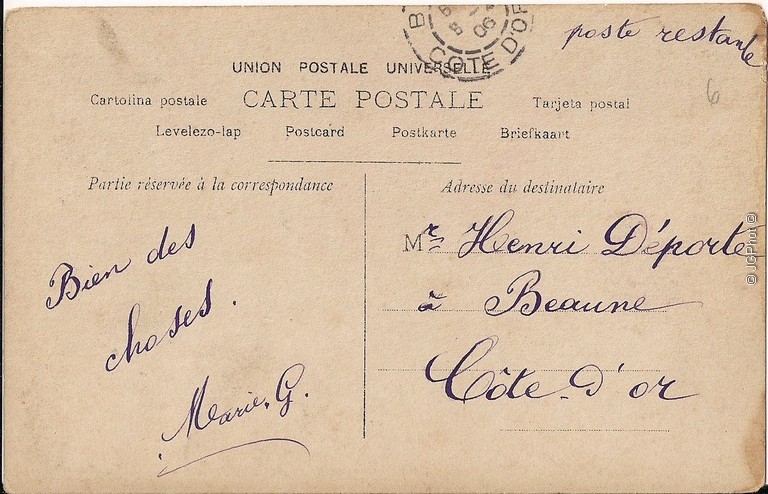 poste restante
COTE D'OR
06
UNION POSTALE UNIVERSELLE
CARTE POSTALE
Cartolina postale
Tarjeta postal
Levelezo-lap Postcard Postkarte Briefkaart
6
Partie réservée à la correspondance
Bien des
choses.
Marie. G.
Adresse du destinataire
Mr Henri Déporte
à Beaune
Côte-D'or
© JGPhot ©